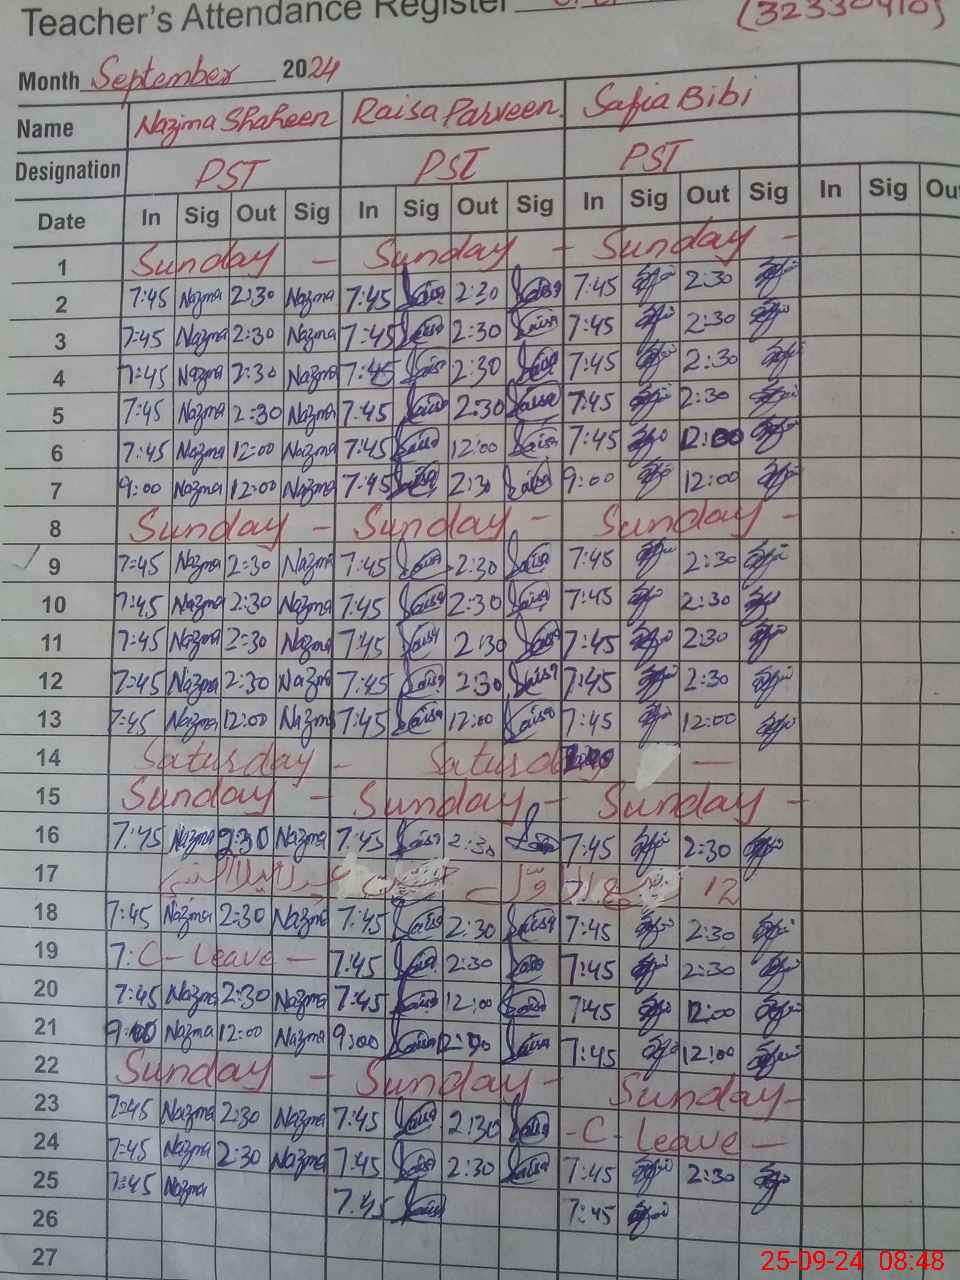 Teacher's Attendance Register
(32330410)
Month September 2024
Name Nazma Shaheen Raisa Parveen Safia Bibi
Designation PST PST PST
Date In Sig Out Sig In Sig Out Sig In Sig Out Sig In Sig Out
1 Sunday - Sunday - Sunday -
2 7:45 Nazma 2:30 Nazma 7:45 Raisa 2:30 Raisa 7:45 2:30
3 7:45 Nazma 2:30 Nazma 7:45 Raisa 2:30 Raisa 7:45 2:30
4 7:45 Nazma 2:30 Nazma 7:45 Raisa 2:30 Raisa 7:45 2:30
5 7:45 Nazma 2:30 Nazma 7:45 Raisa 2:30 Raisa 7:45 2:30
6 7:45 Nazma 12:00 Nazma 7:45 Raisa 12:00 Raisa 7:45 12:00
7 9:00 Nazma 12:00 Nazma 7:45 Raisa 2:30 Raisa 9:00 12:00
8 Sunday - Sunday - Sunday -
9 7:45 Nazma 2:30 Nazma 7:45 Raisa 2:30 Raisa 7:45 2:30
10 7:45 Nazma 2:30 Nazma 7:45 Raisa 2:30 Raisa 7:45 2:30
11 7:45 Nazma 2:30 Nazma 7:45 Raisa 2:30 Raisa 7:45 2:30
12 7:45 Nazma 2:30 Nazma 7:45 Raisa 2:30 Raisa 7:45 2:30
13 7:45 Nazma 12:00 Nazma 7:45 Raisa 12:00 Raisa 7:45 12:00
14 Saturday - Saturday -
15 Sunday - Sunday - Sunday -
16 7:45 Nazma 2:30 Nazma 7:45 Raisa 2:30 Raisa 7:45 2:30
17 12
18 7:45 Nazma 2:30 Nazma 7:45 Raisa 2:30 Raisa 7:45 2:30
19 7: C - Leave - 7:45 Raisa 2:30 Raisa 7:45 2:30
20 7:45 Nazma 2:30 Nazma 7:45 Raisa 12:00 Raisa 7:45 12:00
21 9:00 Nazma 12:00 Nazma 9:00 Raisa 12:00 Raisa 7:45 12:00
22 Sunday - Sunday - Sunday -
23 7:45 Nazma 2:30 Nazma 7:45 Raisa 2:30 Raisa - C - Leave -
24 7:45 Nazma 2:30 Nazma 7:45 Raisa 2:30 Raisa 7:45 2:30
25 7:45 Nazma 7:45 Raisa 7:45
26
27
25-09-24 08:48